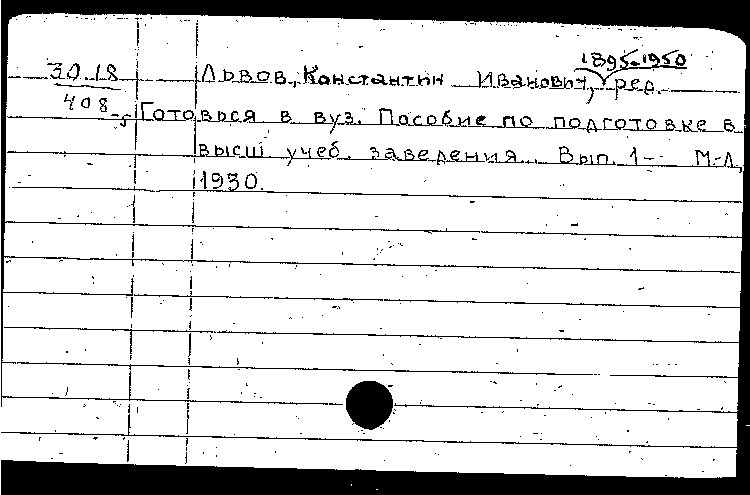 1895-1950
30.18 Львов, Константин Иванович, ред.
408-5 Готовься в вуз. Пособие по подготовке в
высш. учеб. заведения. Вып. 1- М.-Л.,
1930.